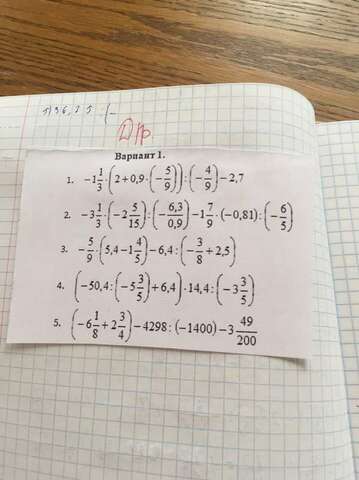 Др.
Вариант 1.
1. −1 1/3 · (2 + 0,9 · (−5/9)) : (−4/9) − 2,7
2. −3 1/3 · (−2 5/15) : (−6,3/0,9) − 1 7/9 · (−0,81) : (−6/5)
3. −5/9 · (5,4 − 1 4/5) − 6,4 : (−3/8 + 2,5)
4. (−50,4 : (−5 3/5) + 6,4) · 14,4 : (−3 3/5)
5. (−6 1/8 + 2 3/4) − 4298 : (−1400) − 3 49/200